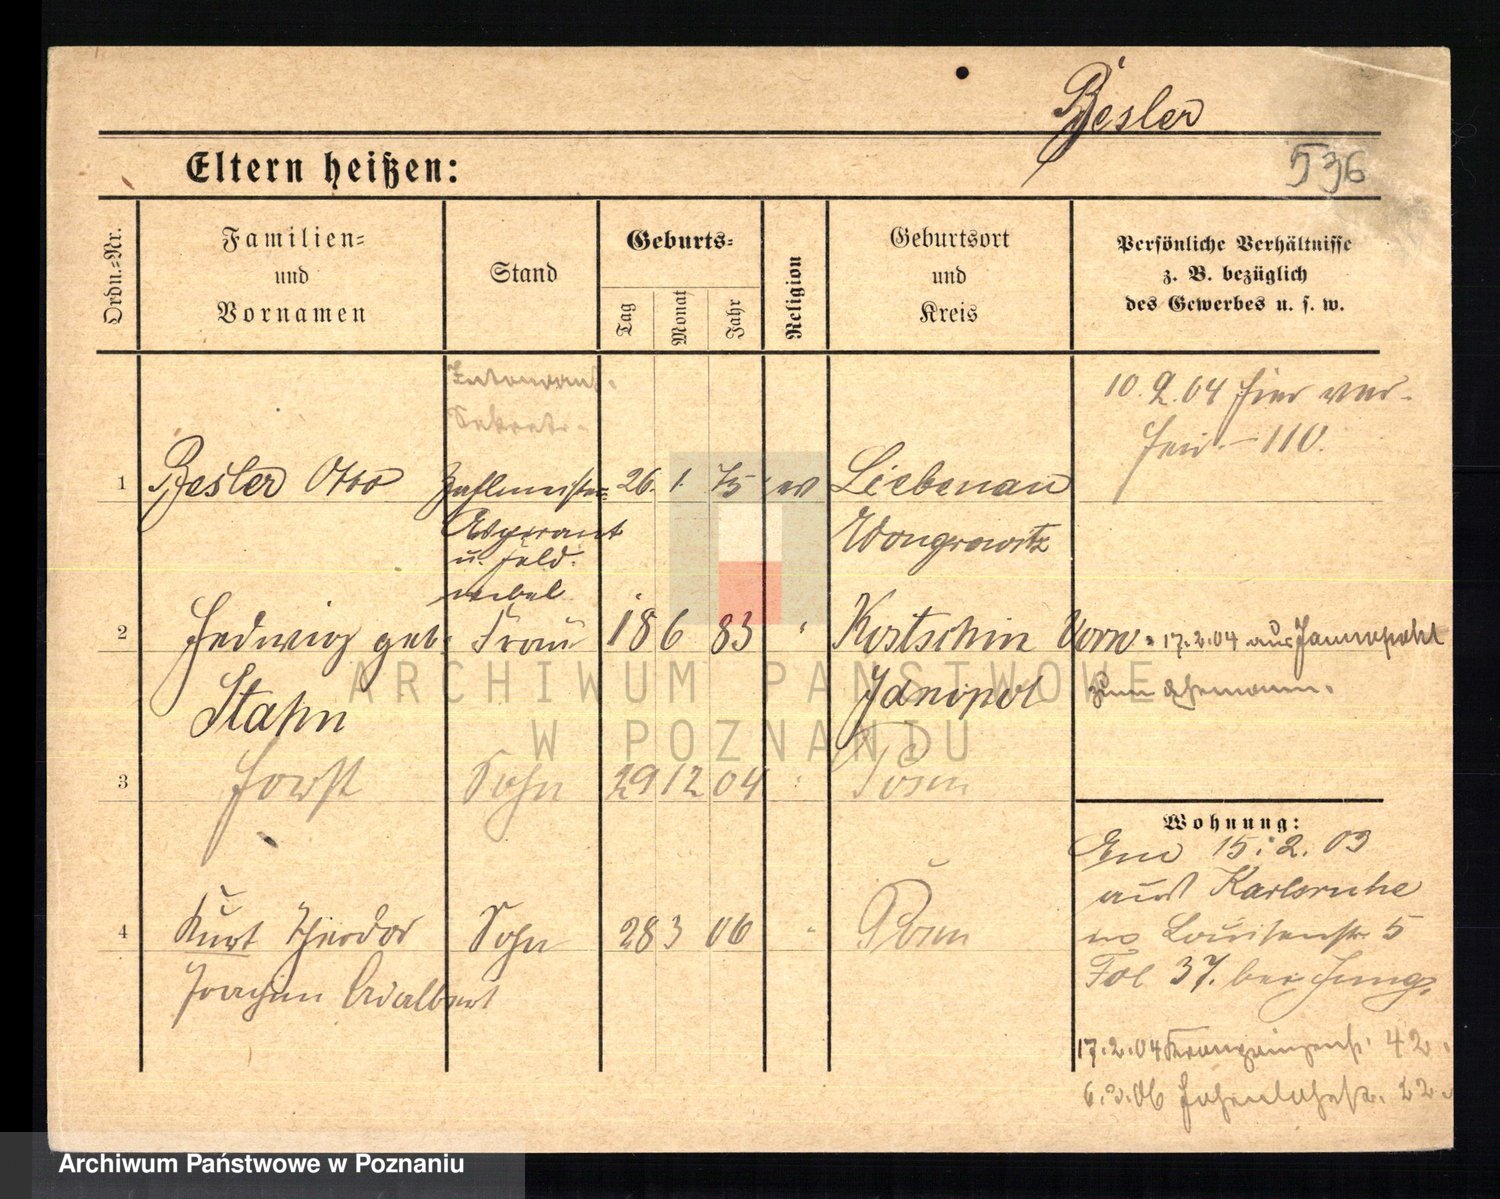 Besler
536
Eltern heißen:
Ordn.=Nr.
Familien=
und
Vornamen
Stand
Geburts=
Tag
Monat
Jahr
Religion
Geburtsort
und
Kreis
Persönliche Verhältnisse
z. B. bezüglich
des Gewerbes u. s. w.
Sekretär
10. 2. 04 hier
110.
1 Besler Otto Zahlmeister= 26. 1. 75 ev Liebenau
Aspirant Wongrowitz
u. Feld=
webel
2 Hedwig geb. Frau 18 6 83 " Kortschin
17.2.04 aus
Stahn Janipol
zum Ehemann.
3 Horst Sohn 29 12 04 " Posen
Wohnung:
15. 2. 03
aus Karlsruhe
4 Kurt Theodor Sohn 28 3 06 " Posen
Louisenstr. 5
Joachim Adalbert
Fol 37. bei Jung.
17.2.04 Kronprinzenstr. 42.
06 22.
ARCHIWUM PAŃSTWOWE
W POZNANIU
Archiwum Państwowe w Poznaniu